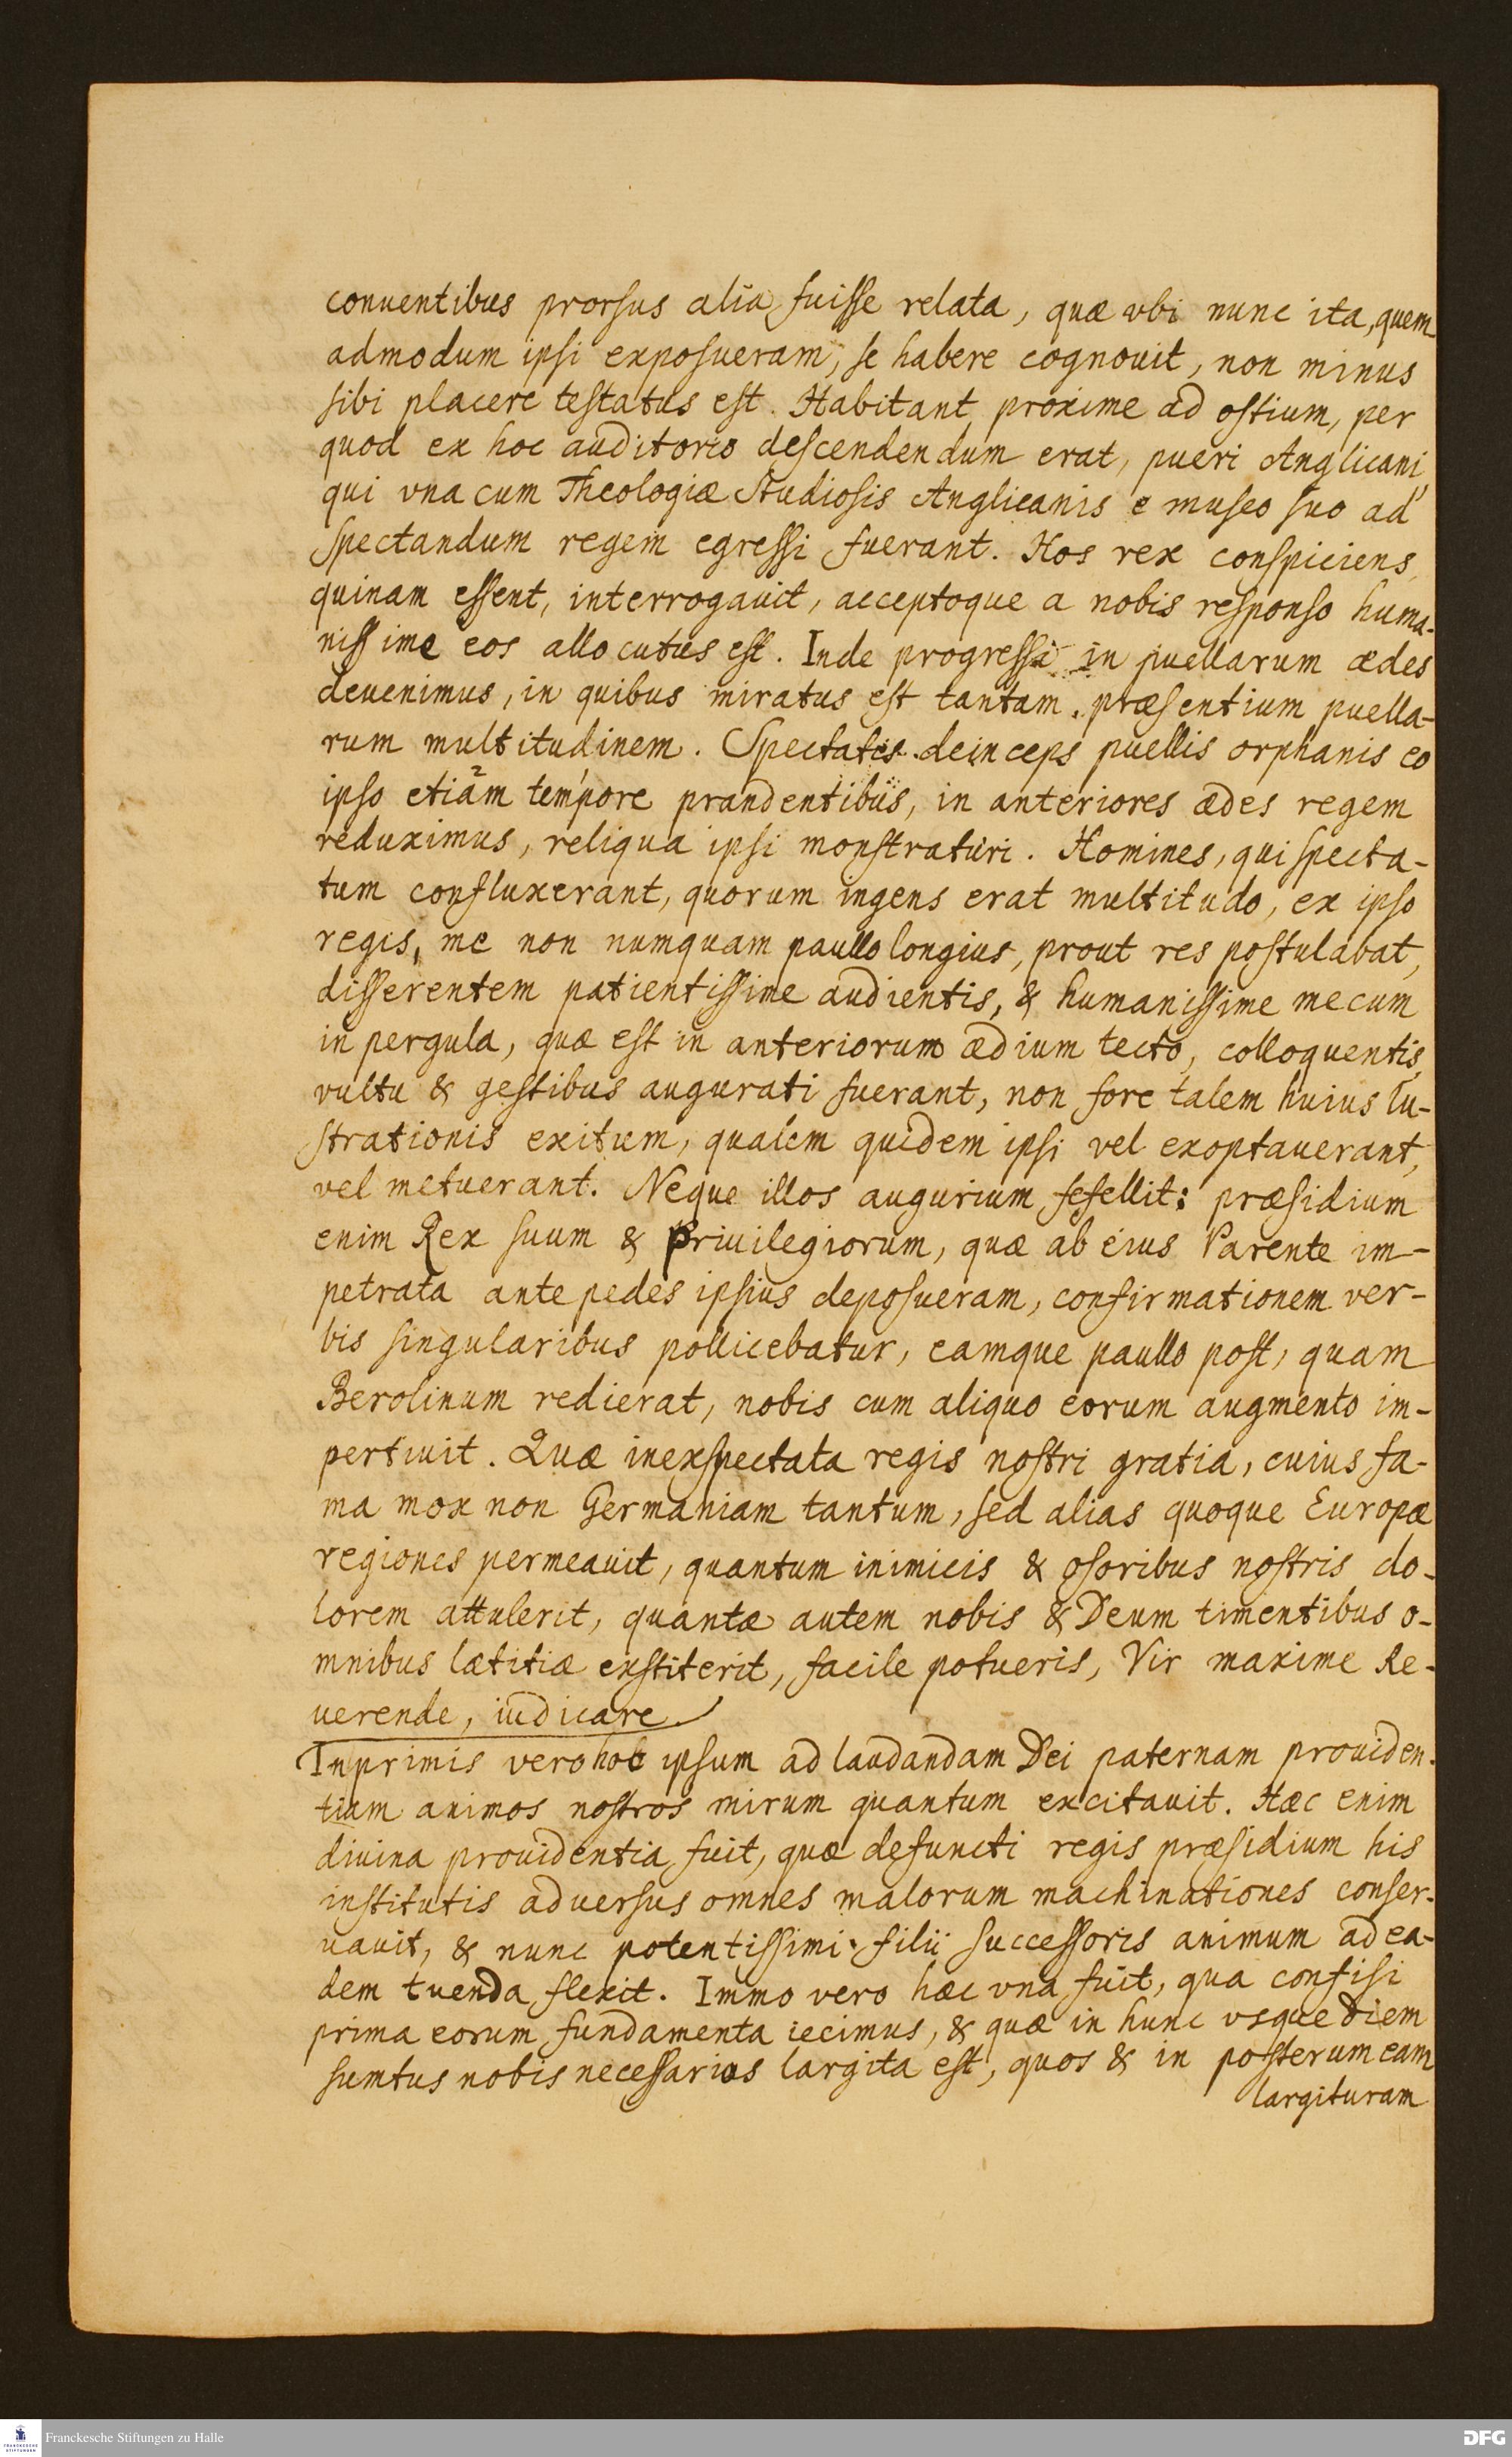 conuentibus prorsus alia fuisse relata, quæ vbi nunc ita, quem-
admodum ipsi exposueram, se habere cognouit, non minus
sibi placere testatus est. Habitant proxime ad ostium, per
quod ex hoc auditorio descendendum erat, pueri Anglicani,
qui vna cum Theologiæ Studiosis Anglicanis e museo suo ad
spectandum regem egressi fuerant. Hos rex conspiciens,
quinam essent, interrogauit, acceptoque a nobis responso huma-
nissime eos allocutus est. Inde progressi in puellarum ædes
deuenimus, in quibus miratus est tantam præsentium puella-
rum multitudinem. Spectatis deinceps puellis orphanis eo
ipso etiam tempore prandentibus, in anteriores ædes regem
reduximus, reliqua ipsi monstraturi. Homines, qui specta-
tum confluxerant, quorum ingens erat multitudo, ex ipso
regis, me non numquam paullo longius, prout res postulabat,
disserentem patientissime audientis, & humanissime mecum
in pergula, quæ est in anteriorum ædium tecto, colloquentis,
vultu & gestibus augurati fuerant, non fore talem huius lu-
strationis exitum, qualem quidem ipsi vel exoptauerant,
vel metuerant. Neque illos augurium fefellit: præsidium
enim Rex suum & priuilegiorum, quæ ab eius Parente im-
petrata ante pedes ipsius deposueram, confirmationem ver-
bis singularibus pollicebatur, eamque paullo post, quam
Berolinum redierat, nobis cum aliquo eorum augmento im-
pertiuit. Quæ inexspectata regis nostri gratia, cuius fa-
ma mox non Germaniam tantum, sed alias quoque Europæ
regiones permeauit, quantum inimicis & osoribus nostris do-
lorem attulerit, quantæ autem nobis & Deum timentibus o-
mnibus lætitiæ exstiterit, facile potueris, Vir maxime Re-
uerende, iudicare.
Inprimis vero hoc ipsum ad laudandam Dei paternam prouiden-
tiam animos nostros mirum quantum excitauit. Hæc enim
diuina prouidentia fuit, quæ defuncti regis præsidium his
institutis aduersus omnes malorum machinationes conser-
uauit, & nunc potentissimi filii successoris animum ad ea-
dem tuenda flexit. Immo vero hæc vna fuit, qua confisi
prima eorum fundamenta iecimus, & quæ in hunc vsque diem
sumtus nobis necessarios largita est, quos & in posterum eam
largituram
Franckesche Stiftungen zu Halle
DFG